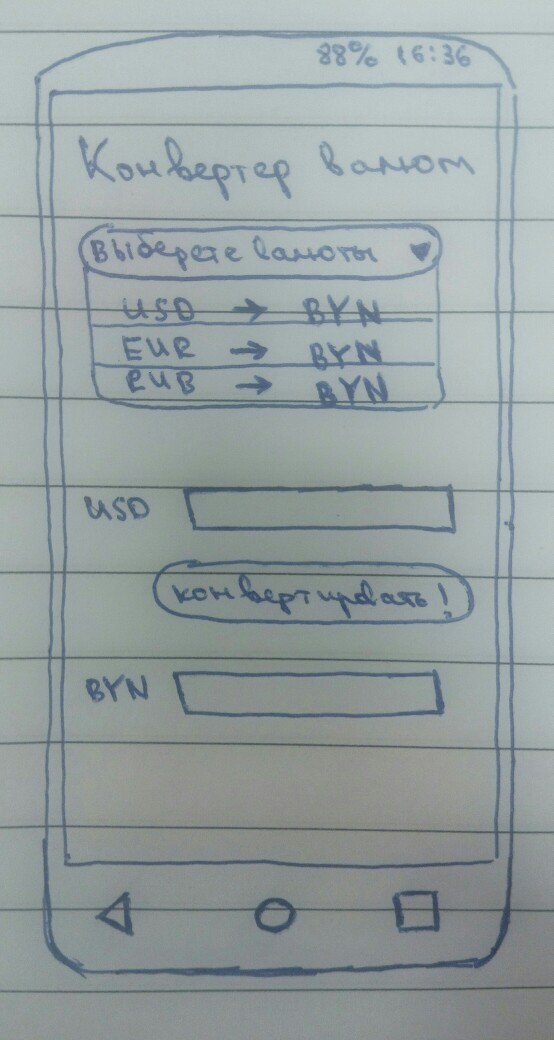 88% 16:36
Конвертер валют
Выберете валюты
USD → BYN
EUR → BYN
RUB → BYN
USD
конвертировать!
BYN